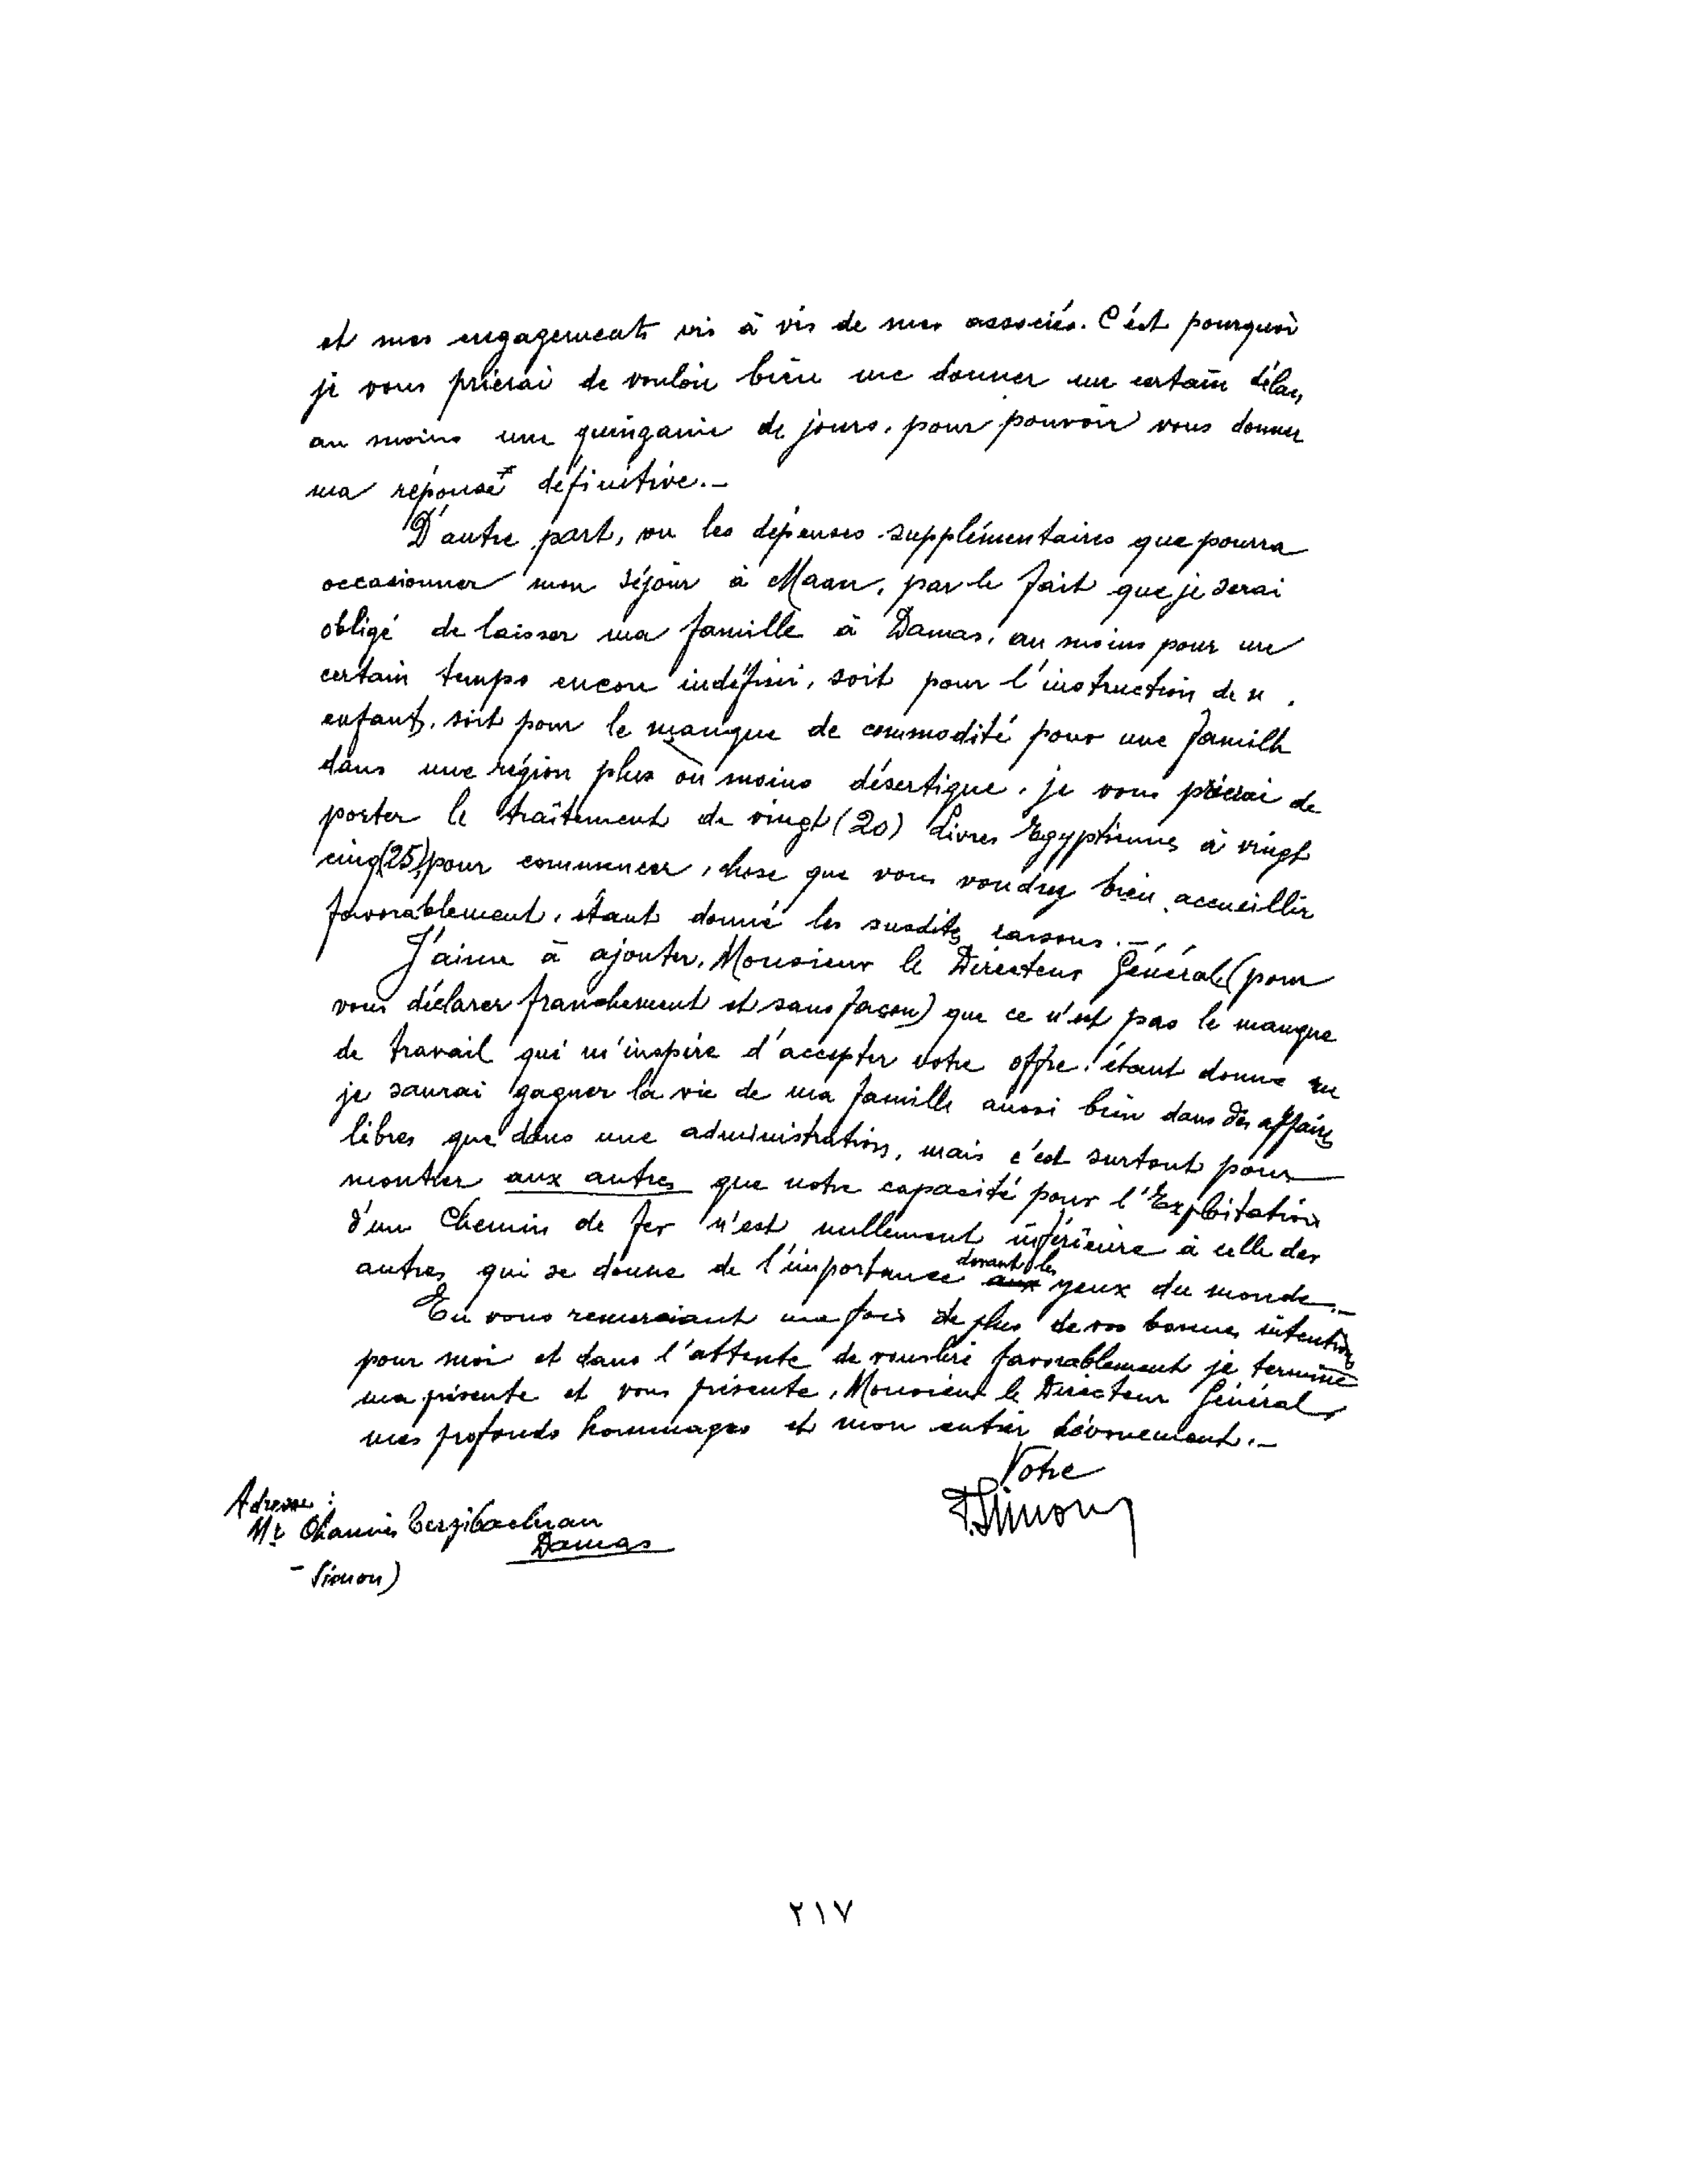 et mes engagements vis à vis de mes associés. C'est pourquoi
je vous prierai de vouloir bien me donner un certain délai,
au moins une quinzaine de jours, pour pouvoir vous donner
ma réponse définitive.-
D'autre part, vu les dépenses supplémentaires que pourra
occasionner mon séjour à Maan, par le fait que je serai
obligé de laisser ma famille à Damas, au moins pour un
certain temps encore indéfini, soit pour l'instruction de
enfants, soit pour le manque de commodité pour une famille
dans une région plus ou moins désertique, je vous prierai de
porter le traîtement de vingt (20) Livres Egyptiennes à vingt
cinq (25) pour commencer, chose que vous voudrez bien accueillir
favorablement, étant donné les susdites raisons.-
J'aime à ajouter, Monsieur le Directeur Général (pour
vous déclarer franchement et sans façon) que ce n'est pas le manque
de travail qui m'inspire d'accepter votre offre, étant donné
je saurai gagner la vie de ma famille aussi bien dans des affaires
libres que dans une administration, mais c'est surtout pour
montrer aux autres que notre capacité pour l'Exploitation
d'un Chemin de fer n'est nullement inférieure à celle des
autres qui se donne de l'importance devant les aux yeux du monde.-
En vous remerciant une fois de plus de vos bonnes intentions
pour moi et dans l'attente de favorablement je termine
ma présente et vous présente, Monsieur le Directeur Général,
mes profonds hommages et mon entier dévouement.-
Votre
Simon
Adresse :
Mr Ohannès
Damas
- Simon)
٢١٧